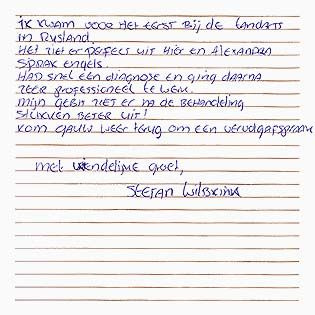 Ik kwam voor het eerst bij de tandarts
in Rusland.
Het ziet er perfect uit hier en Alexandra
sprak engels.
Had snel een diagnose en ging daarna
zeer professioneel te werk.
Mijn gebit ziet er na de behandeling
stukken beter uit!
Kom gauw weer terug om een vervolgafspraak
met vriendelijke groet,
Stefan